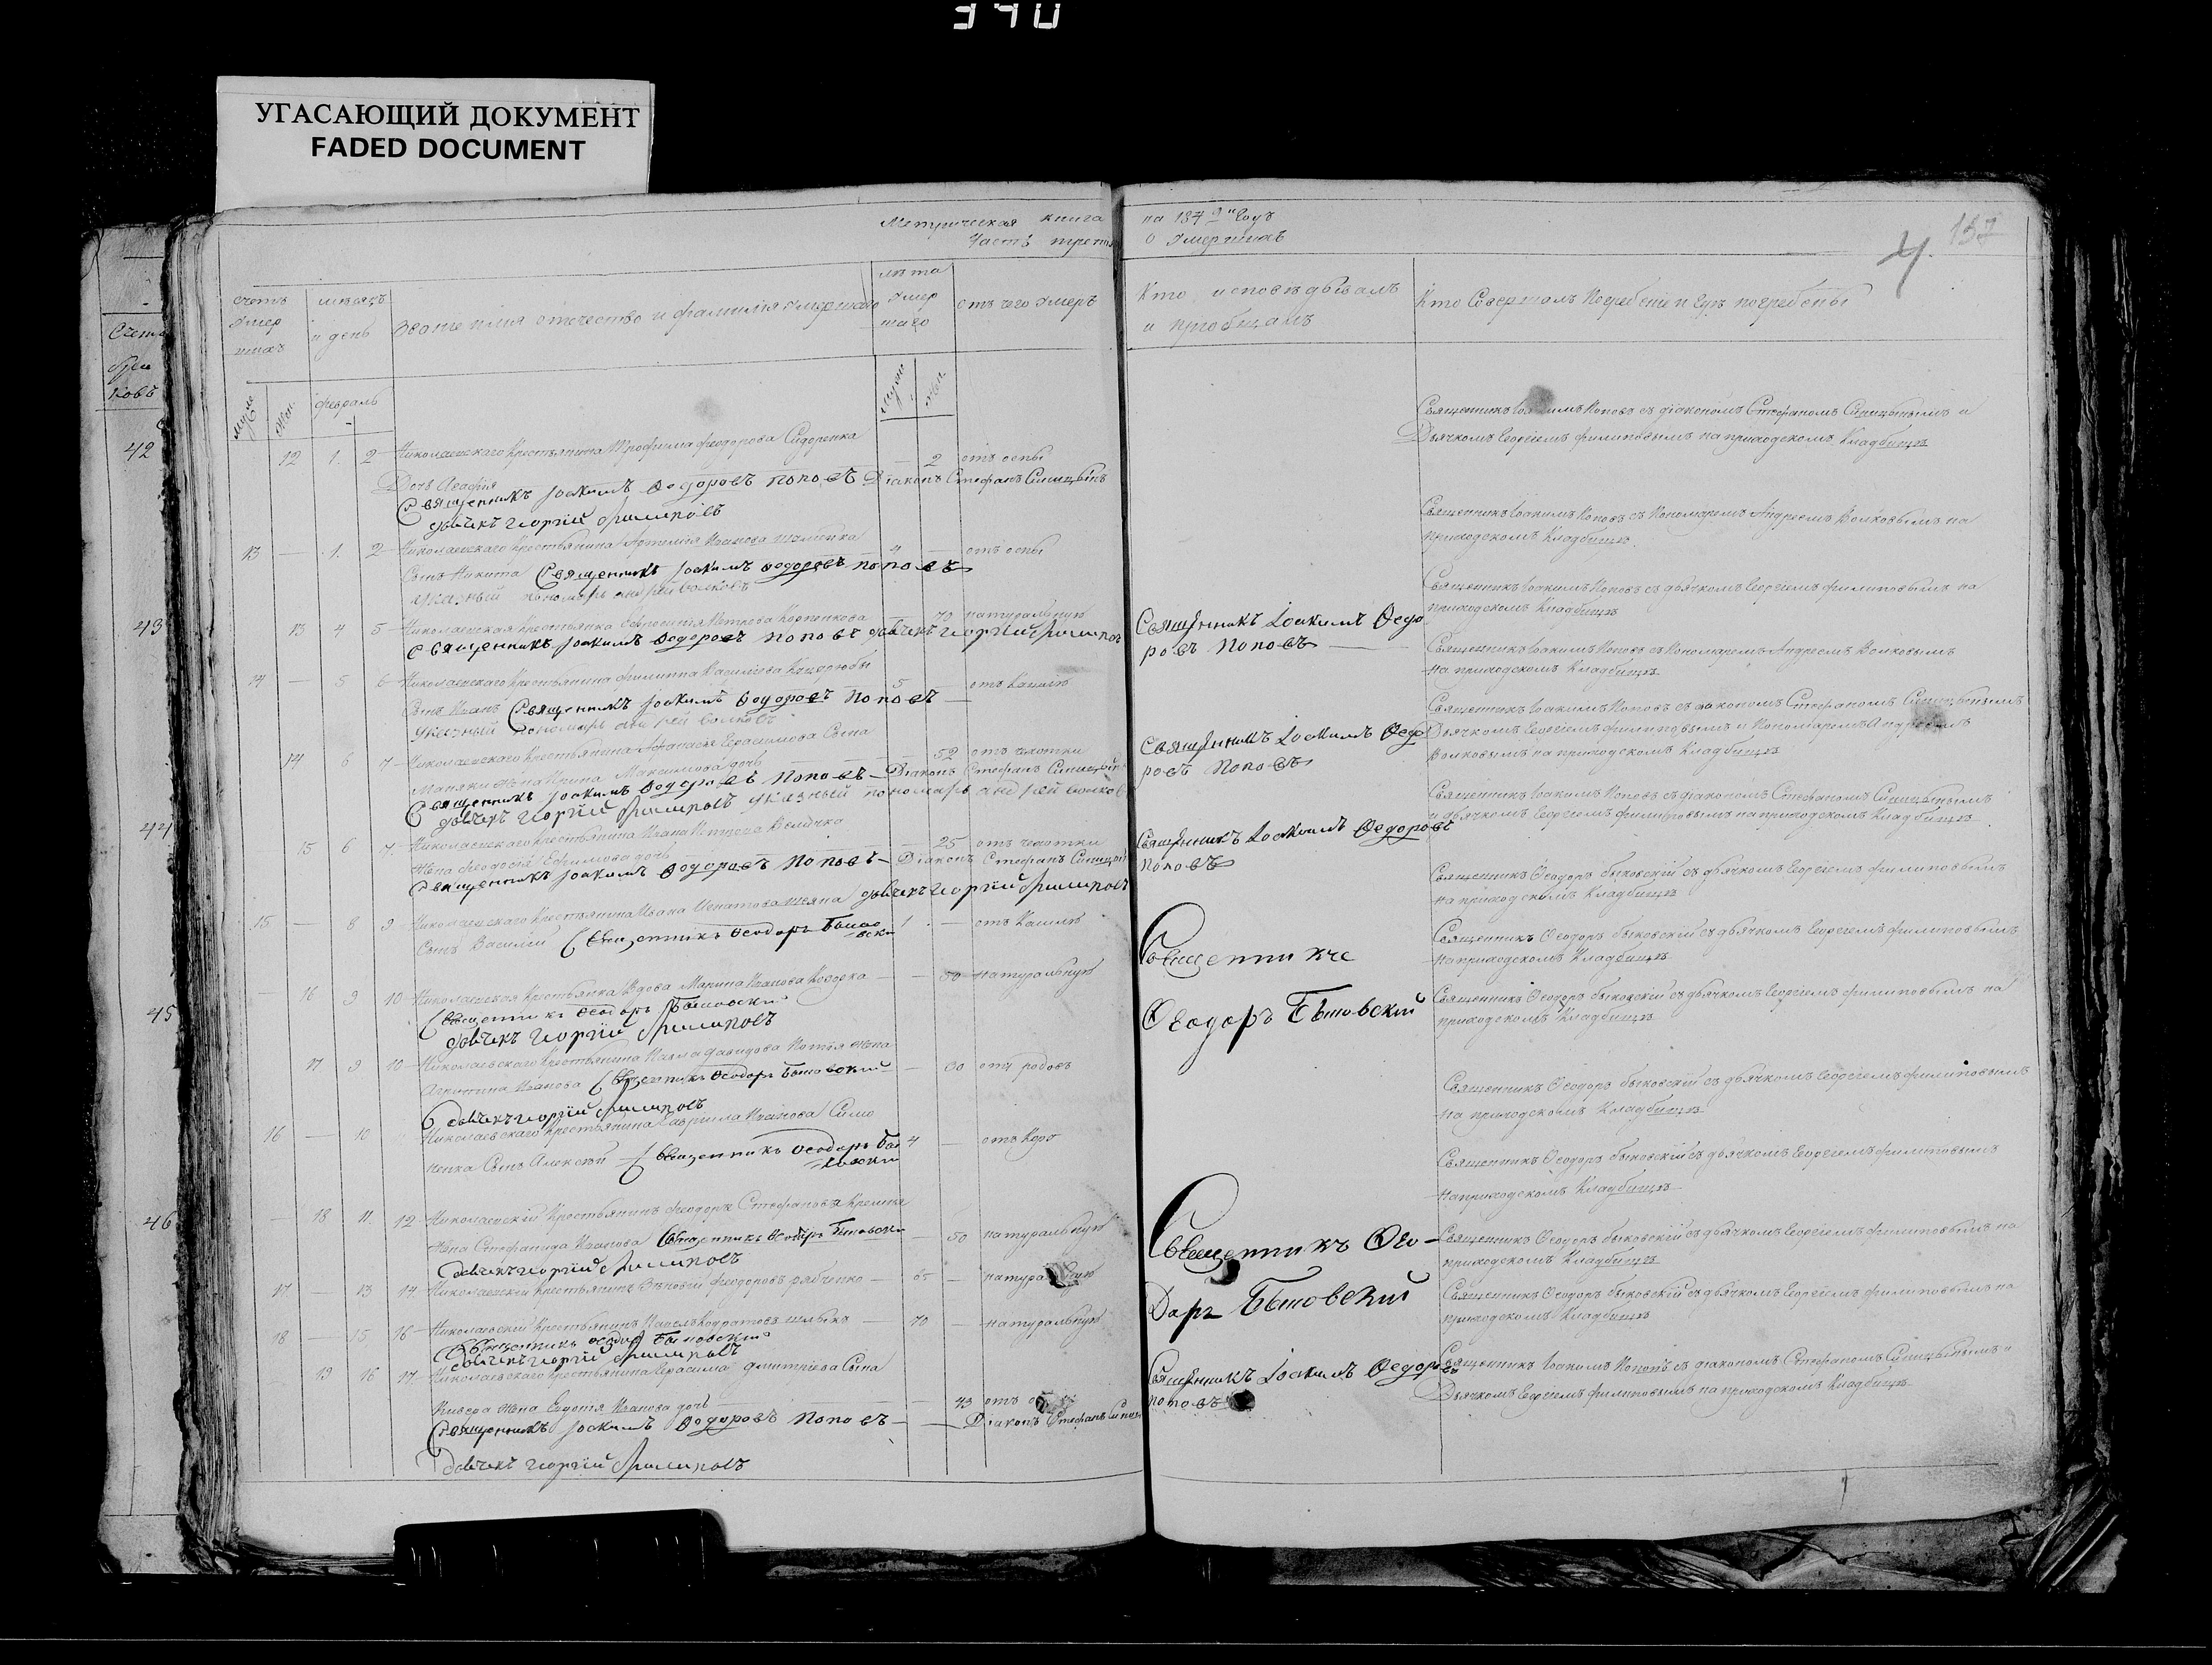 370
УГАСАЮЩИЙ ДОКУМЕНТ
FADED DOCUMENT
Метрическая книга на 1849й Годъ
Часть третья о Умершихъ
4.
137
Счетъ Умершихъ
мѣсяцъ и день
Званіе имя отечество и фамилія Умершаго
лѣта Умершаго
отъ чего Умеръ
Кто исповѣдывалъ и пріобщалъ
Кто Совершалъ Погребеніе и Гдѣ погребены
муже
жен.
февраль
муже
жен.
Счетъ
ковъ
42
43
44
45
46
12 1. 2 Николаевскаго Крестьянина Трофима Феодорова Сидоренка
Дочь Агафія
— 2 отъ оспы
Священникъ Іоакимъ Ѳедоровъ Поповъ Діаконъ Стефанъ Синицынъ
дьячекъ Георгій Филиповъ
Священникъ Іоакимъ Поповъ съ діакономъ Стефаномъ Синицынымъ и
Дьячкомъ Георгіемъ Филиповымъ на приходскомъ Кладбищѣ
13 — 1. 2 Николаевскаго Крестьянина Ивана
Сынъ Никита Священникъ Іоакимъ Ѳедоровъ Поповъ
указный пономарь андрей волковъ
4 — отъ оспы
Священникъ Іоакимъ Поповъ съ Пономаремъ Андреемъ Волковымъ на
приходскомъ Кладбищѣ.
13 4 5 Николаевская Крестьянка Евфросинія Петрова
— 70 натуральную
Священникъ Іоакимъ Ѳедоровъ Поповъ дьячекъ Георгій Филипов
Священникъ Іоакимъ Ѳедо
ровъ Поповъ
Священникъ Іоакимъ Поповъ съ дьячкомъ Георгіемъ Филиповымъ на
приходскомъ Кладбищѣ
14 — 5 6 Николаевскаго Крестьянина Филиппа Василіева
Сынъ Иванъ Священникъ Іоакимъ Ѳедоровъ Поповъ
указный пономарь андрей волковъ
5 — отъ Кашлю
Священникъ Іоакимъ Поповъ съ Пономаремъ Андреемъ Волковымъ
на приходскомъ Кладбищѣ
14 6 7 Николаевскаго Крестьянина Афанасія Герасимова Сына
жена Ирина Максимова дочь
52 отъ чахотки
Священникъ Іоакимъ Ѳедоровъ Поповъ Діаконъ Стефанъ Синицынъ
дьячекъ Георгій Филиповъ указный пономарь андрей волков
Священникъ Іоакимъ Ѳедо
ровъ Поповъ
Священникъ Іоакимъ Поповъ съ діакономъ Стефаномъ Синицынымъ
Дьячкомъ Георгіемъ Филиповымъ и Пономаремъ Андреемъ
Волковымъ на приходскомъ Кладбищѣ
15 6 7. Николаевскаго Крестьянина Ивана Петрова Величка
Жена Феодосія Ефимова дочь
— 25 отъ чахотки
Священникъ Іоакимъ Ѳедоровъ Поповъ Діаконъ Стефанъ Синицын
дьячекъ Георгій Филиповъ
Священникъ Іоакимъ Ѳедоровъ
Поповъ
Священникъ Іоакимъ Поповъ съ діакономъ Стефаномъ Синицынымъ
и дьячкомъ Георгіемъ Филиповымъ на приходскомъ Кладбищѣ
15 — 8 9 Николаевскаго Крестьянина Ивана Игнатова
Сынъ Василій Священникъ Ѳеодоръ Быковски
1 — отъ Кашлю
Священникъ Ѳеодоръ Быковскій съ дьячкомъ Георгіемъ Филиповымъ
на приходскомъ Кладбищѣ
16 9 10 Николаевская Крестьянка Вдова Марина Иванова
— 50 натуральную
Священникъ Ѳеодоръ Быковски
дьячекъ Георгій Филиповъ
Священникъ
Ѳеодоръ Быковскій
Священникъ Ѳеодоръ Быковскій съ дьячкомъ Георгіемъ Филиповымъ
на приходскомъ Кладбищѣ
17 9 10 Николаевскаго Крестьянина Павла Давидова жена
Иванова Священникъ Ѳеодоръ Быковский
дьячекъ Георгій Филиповъ
— 30 отъ родовъ
Священникъ Ѳеодоръ Быковскій съ дьячкомъ Георгіемъ Филиповымъ на
приходскомъ Кладбищѣ
16 — 10 Николаевскаго Крестьянина Гаврила Иванова Симо
ненка Сынъ Алексѣй Священникъ Ѳеодоръ Быковски
4 — отъ Корю
Священникъ Ѳеодоръ Быковскій съ дьячкомъ Георгіемъ Филиповымъ
на приходскомъ Кладбищѣ
— 18 11. 12 Николаевскій Крестьянинъ Феодоръ Стефановъ
Жена Стефанида Иванова Священникъ Ѳеодоръ Быковски
дьячекъ Георгій Филиповъ
— 50 натуральную
Священникъ Ѳеодоръ Быковскій съ дьячкомъ Георгіемъ Филиповымъ
на приходскомъ Кладбищѣ
17 — 13 14 Николаевскій Крестьянинъ Феодоровъ Рябченко
65 — натуральную
Священникъ Ѳео-
доръ Быковский
Священникъ Ѳеодоръ Быковскій съ дьячкомъ Георгіемъ Филиповымъ на
приходскомъ Кладбищѣ
18 — 15 16 Николаевскій Крестьянинъ Павелъ
70 — натуральную
Священникъ Ѳеодоръ Быковский
дьячекъ Георгій Филиповъ
Священникъ Ѳеодоръ Быковскій съ дьячкомъ Георгіемъ Филиповымъ на
приходскомъ Кладбищѣ
19 16 17 Николаевскаго Крестьянина Герасима Дмитріева Сына
жена Евдотія Иванова дочь
— 43
Священникъ Іоакимъ Ѳедоровъ Поповъ Діаконъ Стефанъ
дьячекъ Георгій Филиповъ
Священникъ Іоакимъ Ѳедоровъ
Поповъ
Священникъ Іоакимъ Поповъ съ діакономъ Стефаномъ Синицынымъ и
Дьячкомъ Георгіемъ Филиповымъ на приходскомъ Кладбищѣ